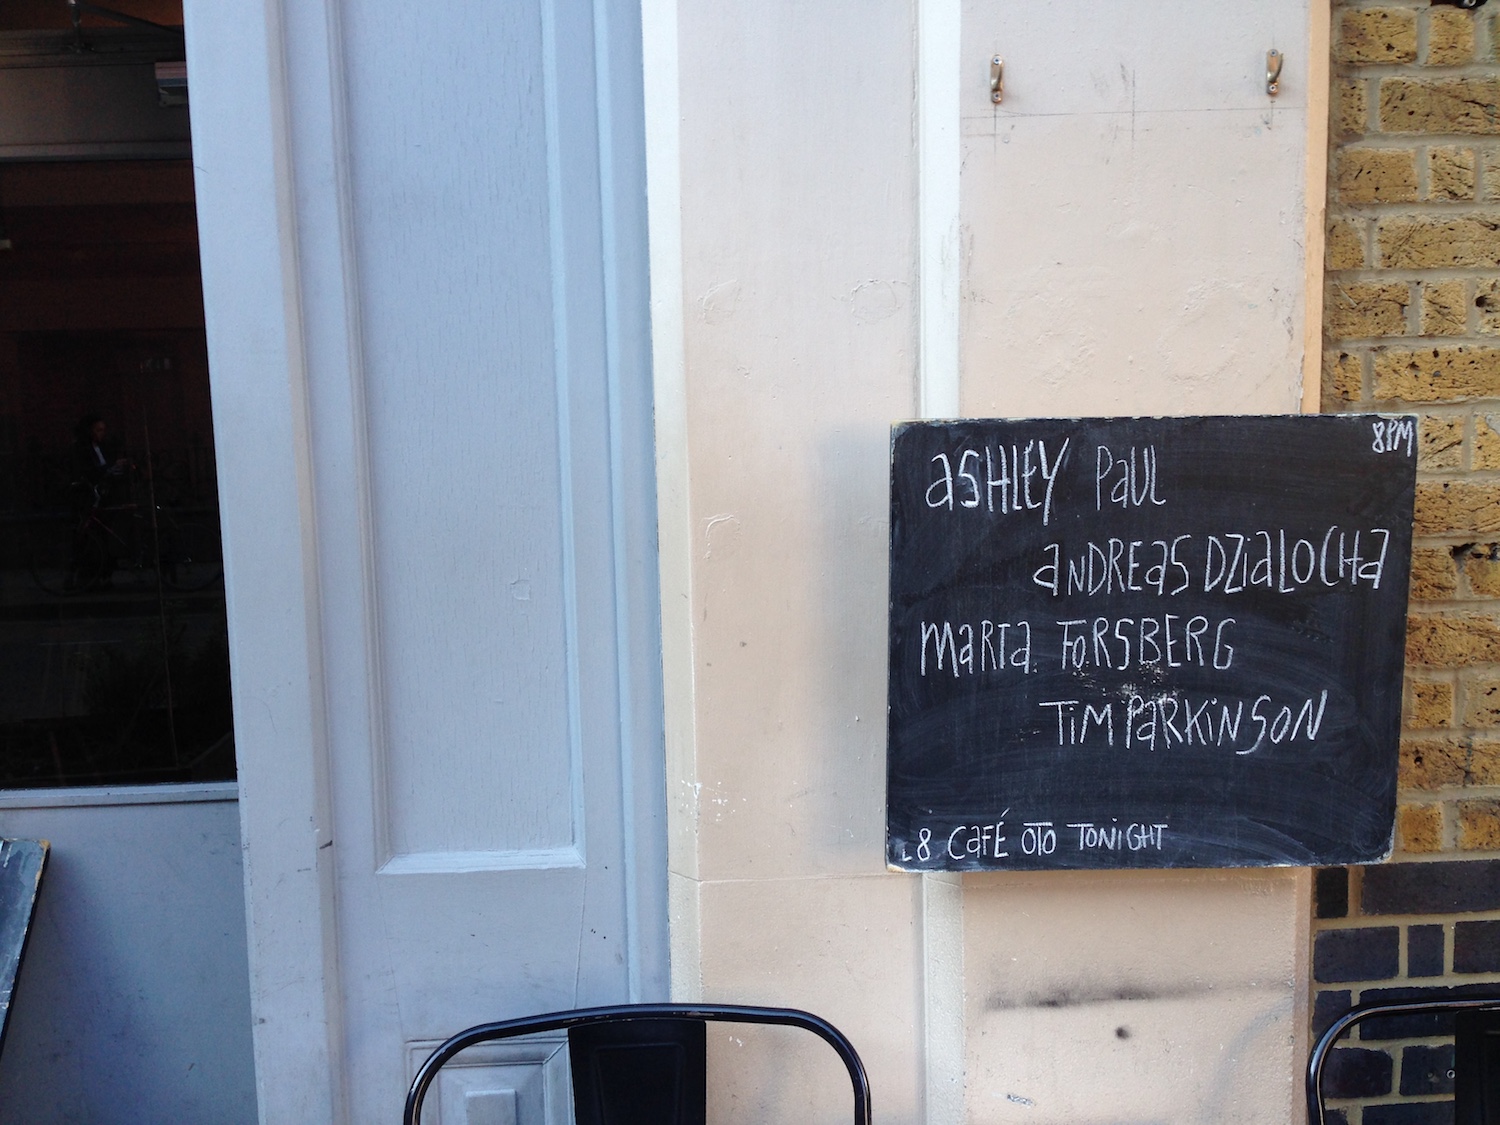 8PM
aSHLEY PaUL
aNDREaS DZiaLOCHa
MaRTa FORSBERG
TiM PaRKiNSON
£8 CaFÉ OTO TONiGHT